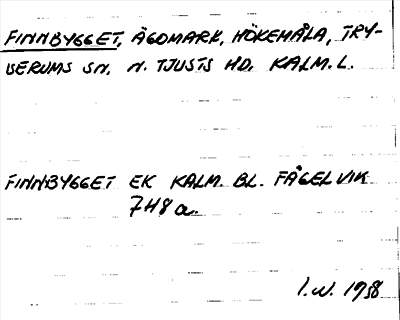 FINNBYGGET, ÄGOMARK, HÖKEMÅLA, TRY-
SERUMS SN, N. TJUSTS HD, KALM. L.
FINNBYGGET EK KALM. BL. FÅGELVIK
7H8a.
I.W. 1958